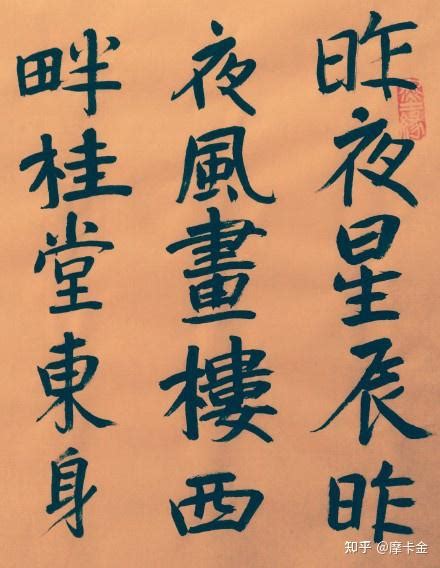 昨夜星辰昨
夜風畫樓西
畔桂堂東身
知乎 @摩卡金